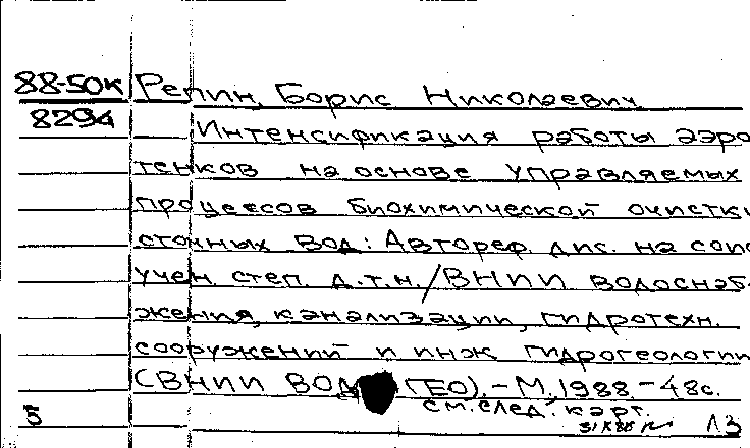 88-50к Репин, Борис Николаевич
8294 Интенсификация работы аэро
тенков на основе управляемых
процессов биохимической очистки
сточных вод: Автореф. дис. на соис
учен. степ. д.т.н./ВНИИ водоснаб-
жения, канализации, гидротехн.
сооружений и инж гидрогеологии
(ВНИИ ВОДГЕО).-М,1988-48с.
см.след. карт.
5 13